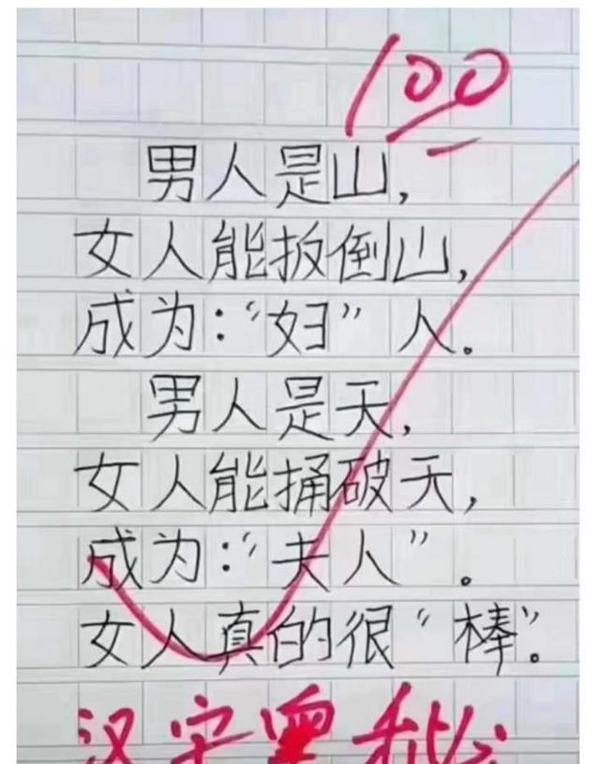 100
男人是山,
女人能扳倒山,
成为:“妇”人。
男人是天,
女人能捅破天,
成为:“夫人”。
女人真的很“棒”。
汉字奥秘